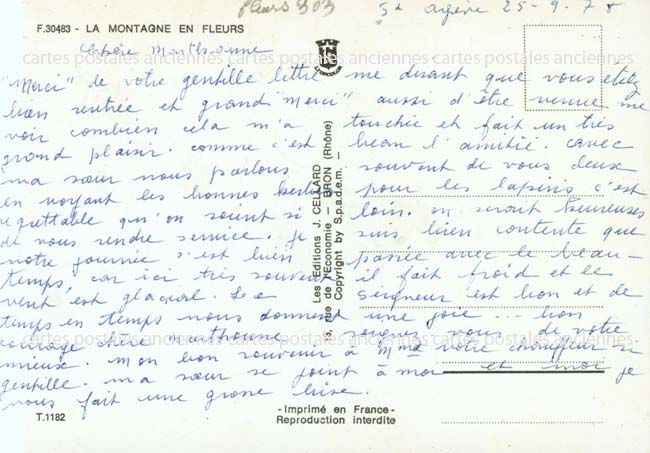 fleurs 303
St Agrève 25-9-78
F.30483 - LA MONTAGNE EN FLEURS
Chère Marthe-anne
"Merci" de votre gentille lettre me disant que vous etiez
bien rentrée et grand "merci" aussi d'être venue me
voir combien cela m'a touchée et fait un très
grand plaisir. comme c'est beau l'amitié. avec
ma sœur nous parlons souvent de vous deux
en voyant les bonnes herbes pour les lapins c'est
regrettable qu'on soient si loin. on serait heureuses
de vous rendre service. je suis bien contente que
votre journée s'est bien passée avec le beau-
temps, car ici très souvent il fait froid et le
vent est glacial. Le Seigneur est bon et de
temps en temps nous donnent une joie ... bon
courage chère Marthanne soignez vous de votre
mieuse. mon bon souvenir à Mme votre chauffeur si
gentille. ma sœur se joint à moi et moi je
vous fait une grosse bise.
Les Editions J. CELLARD
3, rue de l'Economie - BRON (Rhône)
Copyright by S.p.a.d.e.m. -
T.1182
- Imprimé en France -
Reproduction interdite
cartes postales anciennes